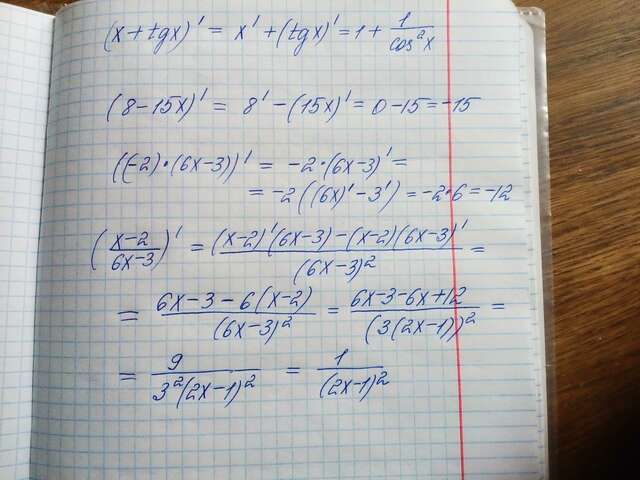 (x+tgx)' = x' + (tgx)' = 1 + 1/cos²x
(8-15x)' = 8' - (15x)' = 0 - 15 = -15
((-2)·(6x-3))' = -2·(6x-3)' =
= -2((6x)' - 3') = -2·6 = -12
((x-2)/(6x-3))' = ((x-2)'(6x-3) - (x-2)(6x-3)')/(6x-3)² =
= (6x-3-6(x-2))/(6x-3)² = (6x-3-6x+12)/(3(2x-1))² =
= 9/(3²(2x-1)²) = 1/(2x-1)²